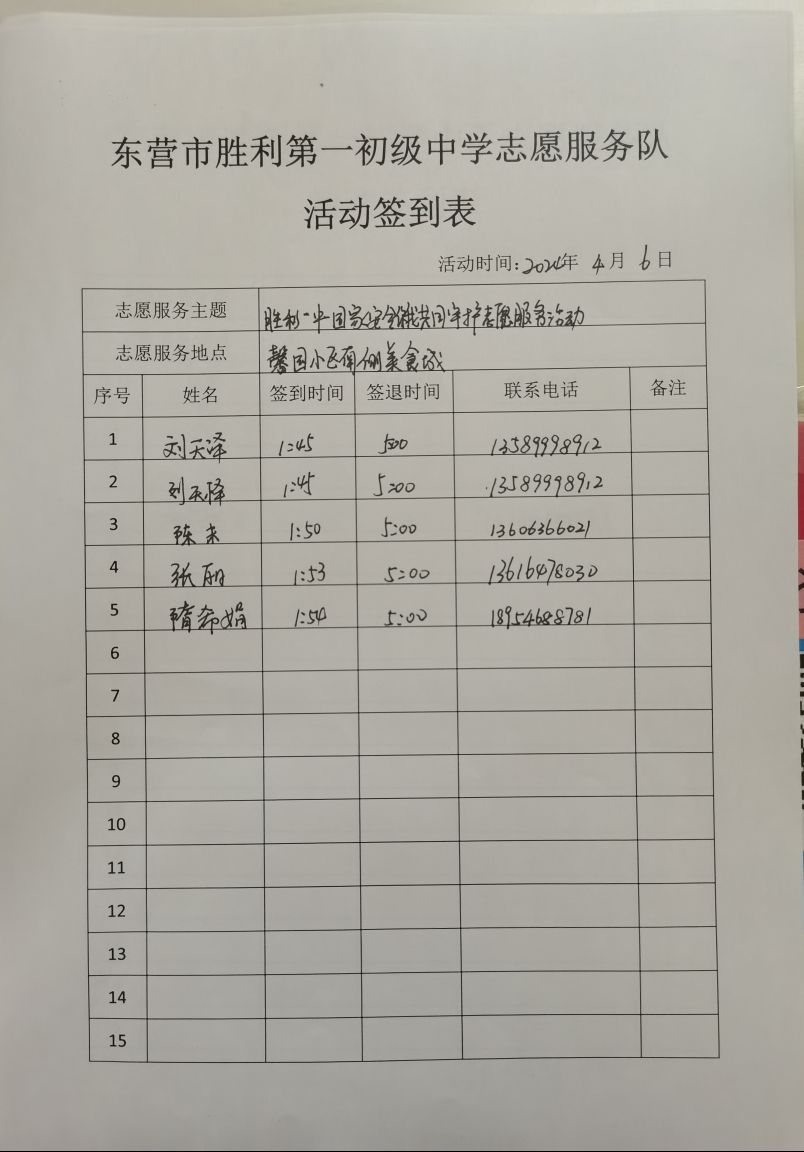 东营市胜利第一初级中学志愿服务队
活动签到表
活动时间:2024年 4月 6日
志愿服务主题 胜利一中国家安全我共同守护志愿服务活动
志愿服务地点 馨园小区南侧美食城
序号 姓名 签到时间 签退时间 联系电话 备注
1 刘天泽 1:45 5:00 13589998912
2 刘天怿 1:45 5:00 13589998912
3 陈来 1:50 5:00 13606366021
4 张丽 1:53 5:00 13616478030
5 隋希娟 1:54 5:00 18954688781
6
7
8
9
10
11
12
13
14
15